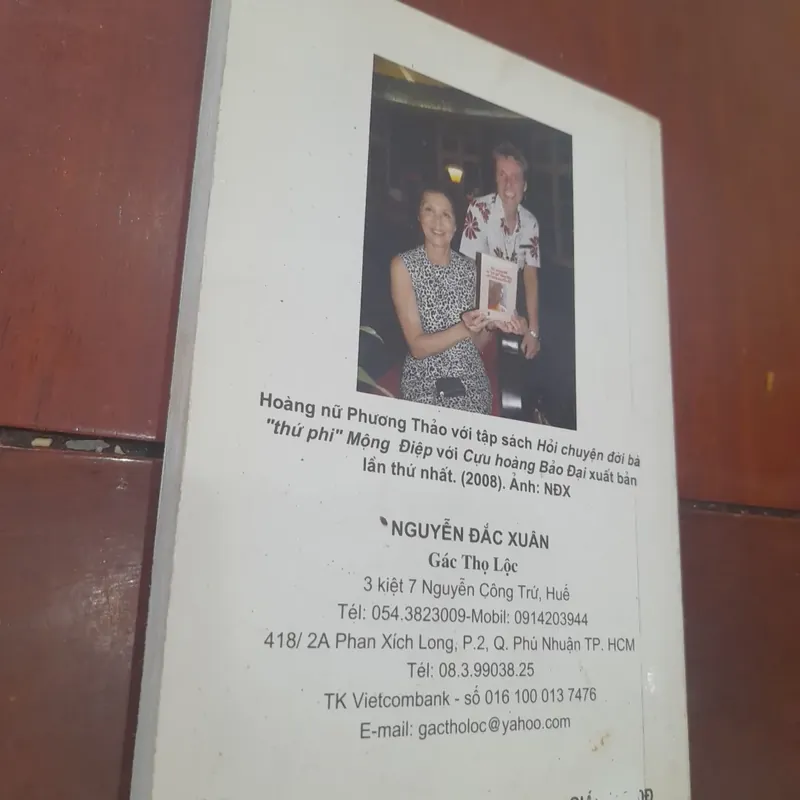 Hoàng nữ Phương Thảo với tập sách Hỏi chuyện đời bà
"thứ phi" Mộng Điệp với Cựu hoàng Bảo Đại xuất bản
lần thứ nhất. (2008). Ảnh: NĐX
NGUYỄN ĐẮC XUÂN
Gác Thọ Lộc
3 kiệt 7 Nguyễn Công Trứ, Huế
Tél: 054.3823009-Mobil: 0914203944
418/ 2A Phan Xích Long, P.2, Q. Phú Nhuận TP. HCM
Tél: 08.3.99038.25
TK Vietcombank - số 016 100 013 7476
E-mail: gactholoc@yahoo.com